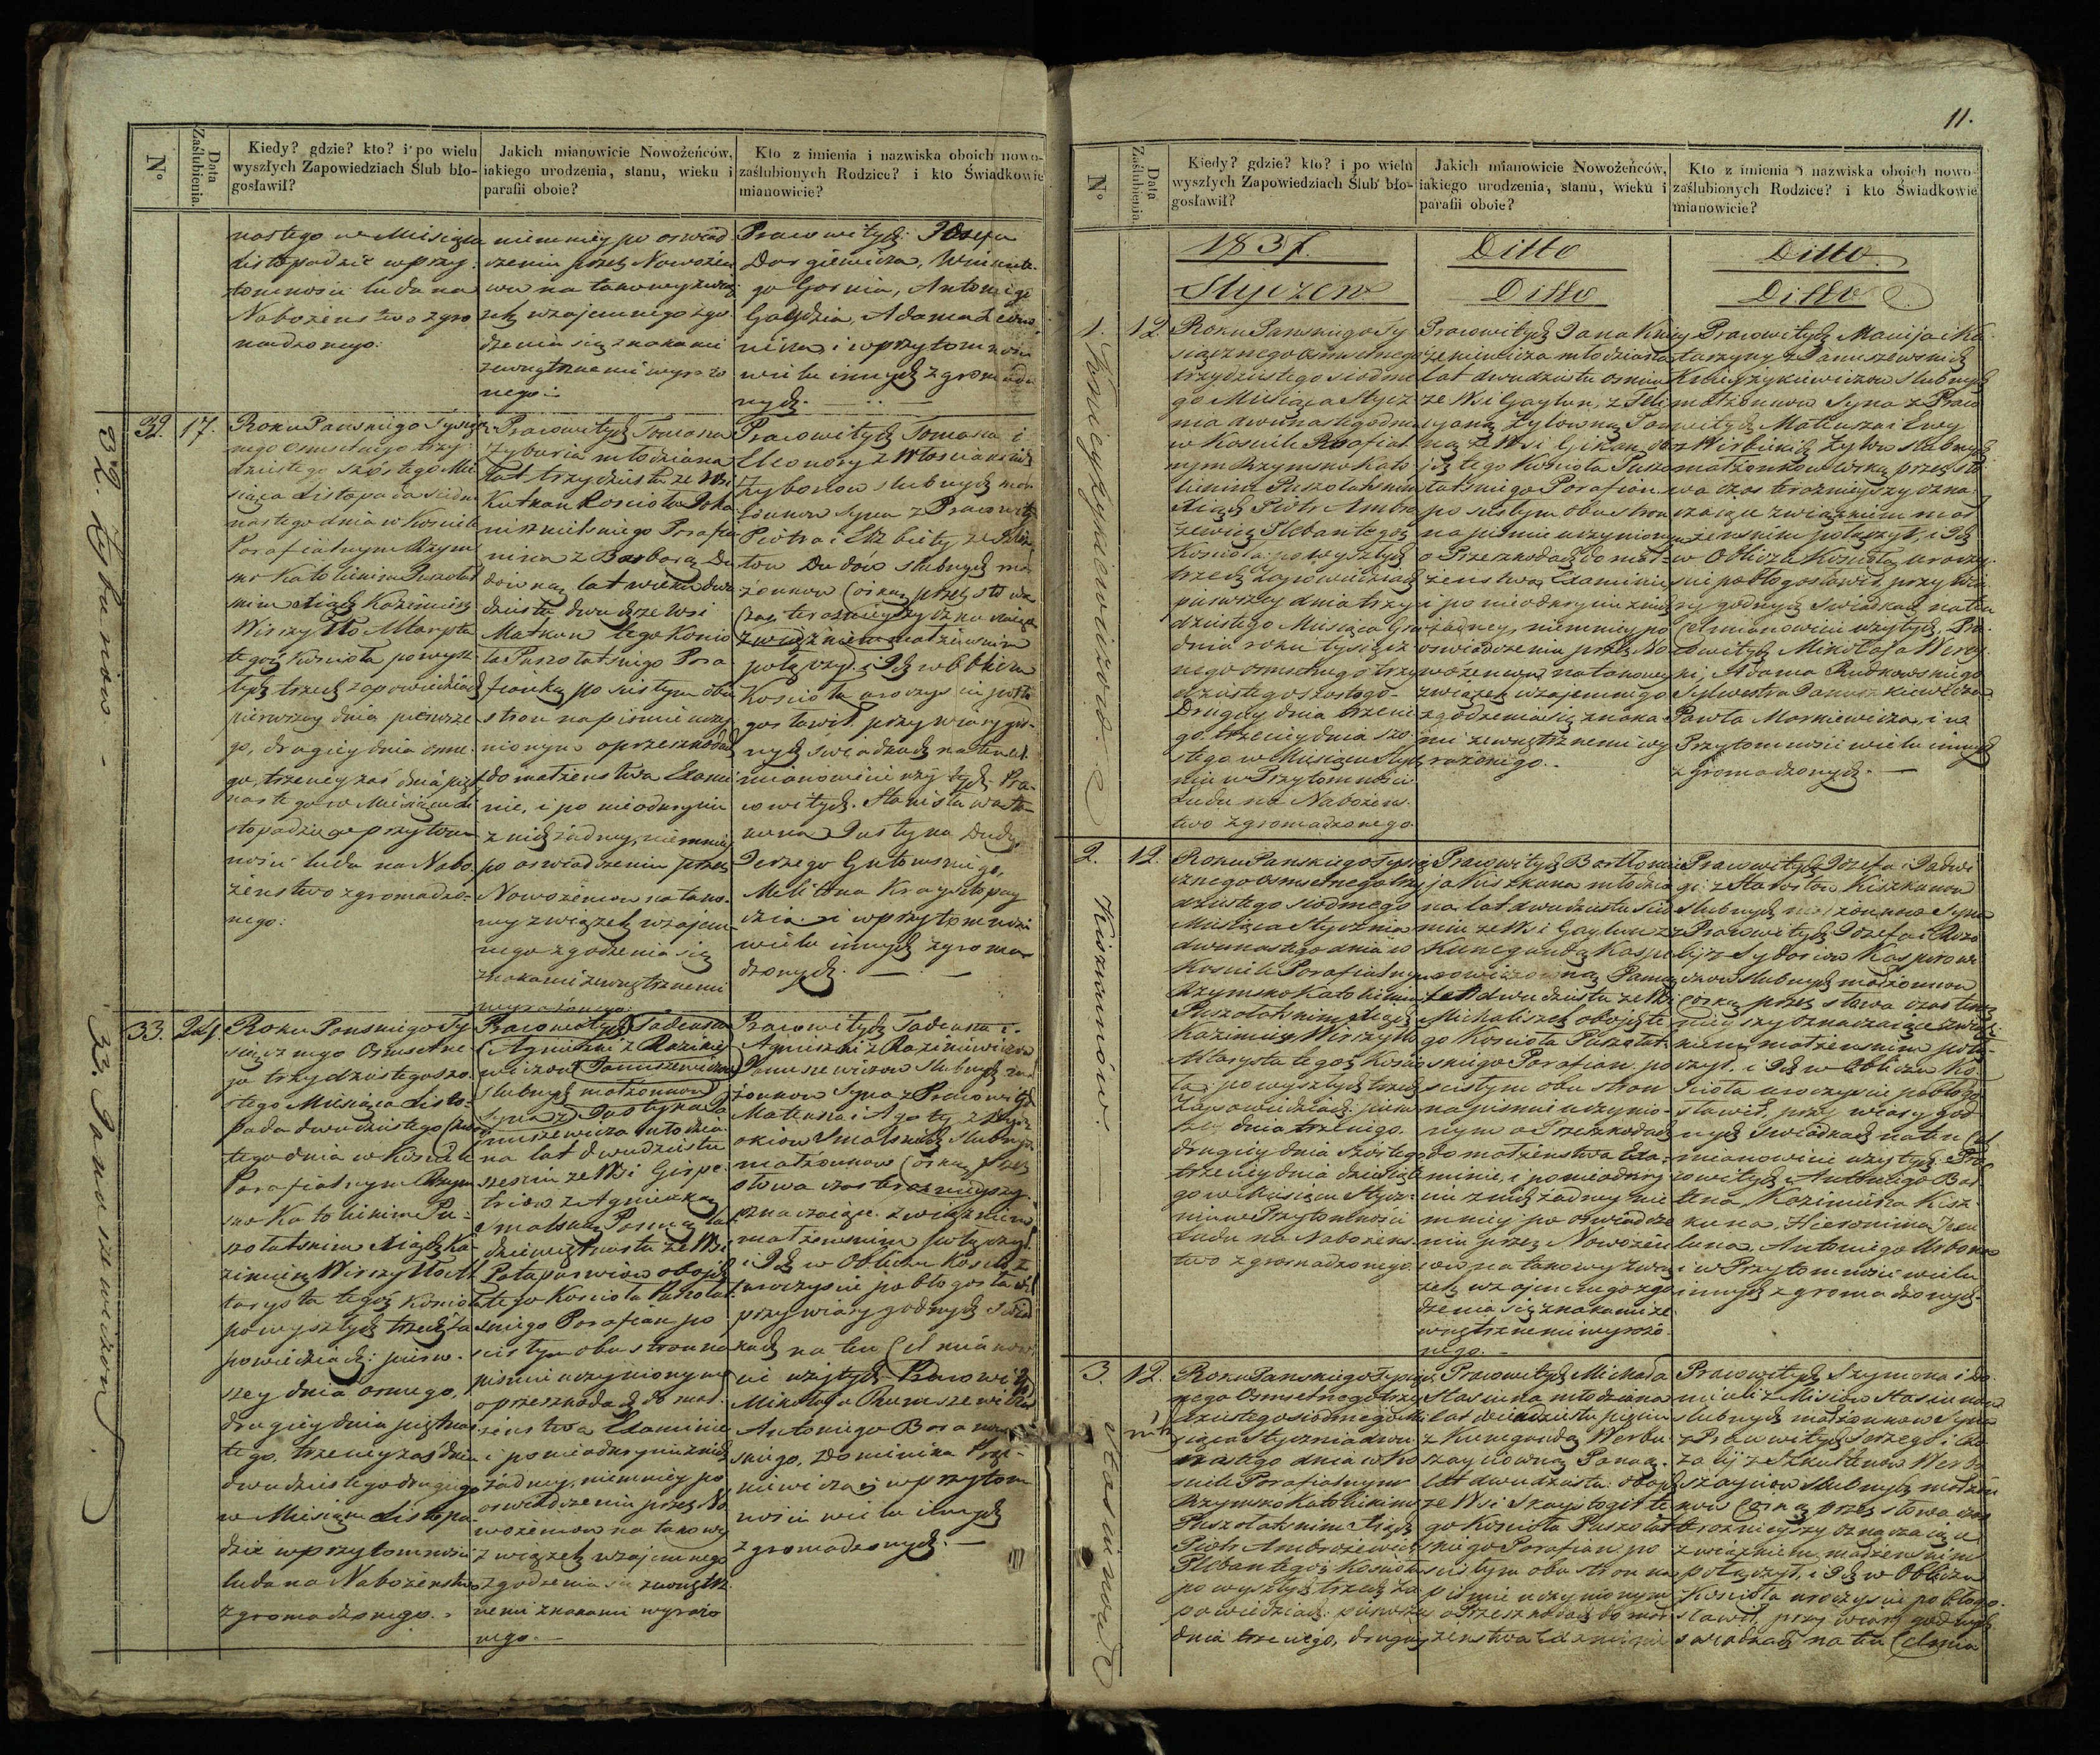 N°
Data Zaślubienia.
Kiedy? gdzie? kto? i po wielu
wyszłych Zapowiedziach Ślub bło-
gosławił?
Jakich mianowicie Nowożeńców,
iakiego urodzenia, stanu, wieku i
parafii oboie?
Kto z imienia i nazwiska oboich nowo-
zaślubionych Rodzice? i kto Świadkowie
mianowicie?
nastego w Miesiącu
Listopadzie w przy-
tomności ludu na
Nabożeństwo zgro
madzonego.
niemniey po oswiad
czeniu przez Nowożeń
ców na takowy zwią
zek wzajemnego zgo
dzenia się znakami
zewnętrznemi wyrażo
nego.
Pracowitych Józefa
go Gasnia, Antoniego
wielu innych zgromadzo
nych.
32. Zybunow
32.
17.
Roku Pańskiego Tysiącz
nego osmsetnego trzy
dziestego szóstego Mie
siąca Listopada siedm
nastego dnia w Kościele
Parafialnym Rzym
sko Katolickim Puszołat
skim Xiądz Kazimierz
Wirszyłło Altarysta
tegoż Kościoła po wysz
łych trzech zapowiedziach
pierwszey dnia pierwsze
go, drugiey dnia osme-
go, trzeciey zaś dnia pięt
nastego w Miesiącu Li
stopadzie w przytom
ności ludu na Nabo
żeństwo zgromadzo-
nego.
Pracowitych Tomasza
Zybunia młodziana
lat trzydziestu ze Wsi
Kutkan Kościoła Joha
niszkielskiego Parafia
nina z Barbarą Du
downą lat wieku dwu
dziestu dwuch ze Wsi
Matkun tego Kościo
ła Puszołatskiego Para
fianką po scisłym obu
stron na pismie uczy
nionym o przeszkodach
do małżeństwa Exami
nie, i po nieodkryciu
z nich żadney, niemniey
po oswiadczeniu przez
Nowożeńców na tako-
wy związek wzajem
nego zgodzenia się
znakami zewnętrznemi
wyrażonego.
Pracowitych Tomasza i
Eleonory z
Zybunow slubnych mał
żonkow Syna z Pracowitych
Piotra i Elżbiety
Dudów slubnych mał
żonkow Córką przez słowa
czas teraźnieyszy oznaczaiące
związkiem małżeńskim
połączył i Ich w Obliczu
Kościoła uroczyscie pobło
gosławił, przy wiary god-
nych świadkach na ten cel
mianowicie użytych Pra-
cowitych Stanisława
Justyna Dudy,
Jerzego Gutowskiego,
i w przytomności
wielu innych zgroma
dzonych.
33. Januszewiczow
33.
24.
Roku Pańskiego Ty
siącznego Osmsetne
go trzydziestego szo
stego Miesiąca Listo-
pada dwudziestego czwar
tego dnia w Kościele
Parafialnym Rzym
sko Katolickim Pu-
szołatskim Xiądz Ka
zimierz Wirszyłło Al
tarysta tegoż Kościoła
po wyszłych trzech Za
powiedziach: pierw-
szey dnia osmego,
drugiey dnia piętnas
tego, trzeciey zaś dnia
dwudziestego drugiego
w Miesiącu Listopa-
dzie w przytomności
ludu na Nabożeństwo
zgromadzonego.
Pracowitych Tadeusza
Agnieszki z Razinkie
wiczow Januszewiczow
slubnych małżonkow
Syna Justyna Ja
nuszewicza młodzia
na lat dwudziestu
szesciu ze Wsi Girpe-
triow z Agnieszką
Smalską Panną lat
dziewiętnastu ze Wsi
obojch
tego Kościoła Puszołat
skiego Parafian po
scisłym obu stron na
pismie uczynionym
o przeszkodach do mał
żeństwa Examinie
i po nieodkryciu z nich
żadney, niemniey po
oswiadczeniu przez No
wożeńców na takowy
związek wzajemnego
zgodzenia się zewnętrz
nemi znakami wyrażo
nego.
Pracowitych Tadeusza i
Agnieszki z Razinkiewiczow
Januszewiczow slubnych mał
żonkow Syna z Pracowitych
Mateusza i Agaty z
Smalskich slubnych
małżonkow Córką przez
słowa czas teraźnieyszy
oznaczaiące związkiem
małżeńskim połączył
i Ich w Obliczu Kościoła
uroczyscie pobłogosławił
przy wiary godnych świad
kach na ten cel mianowi
cie użytych Pracowitych
Mikołaja
Antoniego Bara
skiego, Dominika
i w przytom
ności wielu innych
zgromadzonych.
11.
N°
Data Zaślubienia.
Kiedy? gdzie? kto? i po wielu
wyszłych Zapowiedziach Ślub bło-
gosławił?
Jakich mianowicie Nowożeńców,
iakiego urodzenia, stanu, wieku i
parafii oboie?
Kto z imienia i nazwiska oboich nowo-
zaślubionych Rodzice? i kto Świadkowie
mianowicie?
1837.
Ditto
Ditto
Styczeń
Ditto
Ditto
1.
12.
Roku Pańskiego Ty
siącznego osmsetnego
trzydziestego siódme
go Miesiąca Stycz
nia dwunastego dnia
w Kościele Parafial
nym Rzymsko Kato
lickim Puszołatskim
Xiądz Piotr Ambro
żewicz Pleban tegoż
Kościoła: po wyszłych
trzech Zapowiedziach
pierwszey dnia trzy
dziestego Miesiąca Gru
dnia roku tysiącz
nego osmsetnego trzy
dziestego szostego
Drugiey dnia trzecie
go trzeciey dnia szo
stego w Miesiącu Stycz
niu w Przytomności
Ludu na Nabożeńs
two zgromadzonego.
Pracowitych Jana Kniy
żeniewicza młodziana
lat dwudziestu osmiu
ze Wsi Gaylun, z Julli
janą Żylowną Pan
ną ze Wsi Gikan obo
jch tego Kościoła Puszo
łatskiego Parafian
po scisłym obu stron
na pismie uczynionym
o Przeszkodach do mał-
żeństwa Examinie
i po nieodkryciu z nich
żadney, niemniey po
oswiadczeniu przez No
wożeńców na takowy
związek wzajemnego
zgodzenia się znaka
mi zewnętrznemi wy
rażonego.
Pracowitych Macieja i Ka
tarzyny z Januszewskich
slubnych
małżonkow Syna z Praco
witych Mateusza i Ewy
z Wirbickich Żylow slubnych
małżonkow Córką przez sło
wa czas teraźnieyszy ozna
czaiące związkiem mał
żeńskim połączył, i Ich
w Obliczu Kościoła uroczy
scie pobłogosławił przy wia
ry godnych Świadkach na ten
Cel mianowicie użytych, Pra
cowitych Mikołaja
Adama Rudkowskiego
Sylwestra Januszkiewicza
Pawła Markiewicza, i w
Przytomności wielu innych
zgromadzonych.
2. Kiszkunów
2.
12.
Roku Pańskiego Tysią
cznego osmsetnego trzy
dziestego siódmego
Miesiąca Stycznia
dwunastego dnia w
Kościele Parafialnym
Rzymsko Katolickim
Puszołatskim Xiądz
Kazimierz Wirszyłło
Altarysta tegoż Kościo
ła: po wyszłych trzech
Zapowiedziach: pierw
szey dnia trzeciego.
drugiey dnia szóstego
trzeciey dnia dziewiąte
go w Miesiącu Stycz-
niu w Przytomności
Ludu na Nabożeńs
two zgromadzonego.
Pracowitych Bartłomie
ja Kiszkuna młodzia
na lat dwudziestu sied
miu ze Wsi Gaylun z
Kunegundą Kaspe
rowiczowną Panną
lat dwudziestu ze Wsi
Michaliszek obojch te
go Kościoła Puszołat
skiego Parafian po
scisłym obu stron
na pismie uczynio-
nym o Przeszkodach
do małżeństwa Exa-
minie, i po nieodkry
ciu z nich żadney nie
mniey po oswiadcze
niu przez Nowożeń
ców na takowy zwią
zek wzajemnego zgo
dzenia się znakami ze
wnętrznemi wyrażo
nego.
Pracowitych Józefa i Jadwi
gi z Starostow Kiszkunow
slubnych małżonkow Syna
z Pracowitych Józefa i Roza
lji z Sydorow Kasperowi
czow slubnych małżonkow
Córką przez słowa czas teraz
nieyszy oznaczaiące związ
kiem małżeńskim połą-
czył, i Ich w Obliczu Ko-
scioła uroczyscie pobłogo
sławił, przy wiary god
nych Swiadkach na ten Cel
mianowicie użytych Pra
cowitych Antoniego
Kazimierza Kisz-
kuna, Hieronima
Antoniego Urbona
i w Przytomności wielu
innych zgromadzonych.
3. Stasiunow
3.
12.
Roku Pańskiego Tysiącz
nego Osmsetnego trzy
dziestego siódmego Mie
siąca Stycznia dwu
nastego dnia w Ko
sciele Parafialnym
Rzymsko Katolickim
Puszołatskim Xiądz
Piotr Ambrożewicz
Pleban tegoż Kościoła
po wyszłych trzech Za
powiedziach: pierwszey
dnia trzeciego, drugiey
Pracowitych Michała
Stasiuna młodziana
lat dwudziestu pięciu
z Kunegundą Werbu
szayciowną Panną
lat dwudziestu obojch
ze Wsi Skaystogir te
go Kościoła Puszołat
skiego Parafian po
scisłym obu stron na
pismie uczynionym
o Przeszkodach do mał
żeństwa Examinie
Pracowitych Szymona i Do
micelli z Misiow Stasiunow
slubnych małżonkow Syna
z Pracowitych Jerzego i Ro
zalij z Szkultenow Werbu
szayciow slubnych małżon
kow Córką przez słowa czas
teraźnieyszy oznaczaiące
związkiem małżeńskim
połączył, i Ich w Obliczu
Kościoła uroczyscie pobłogo-
sławił, przy wiary godnych
swiadkach na ten Cel mia